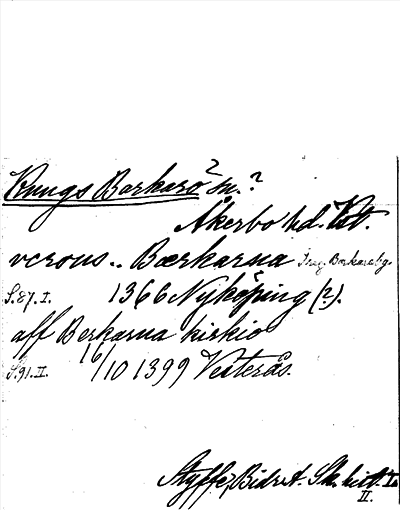 Kungs Barkarö sn.?
Åkerbo hd. Vstm.
verons.. Bærkarna
S. 87. I. 1366 Nyköping (?).
aff Berkarna kirkio
S. 91. II. 16/10 1399 Vesterås.
Styffe, Bidr. t. Sk. hist. I.
II.